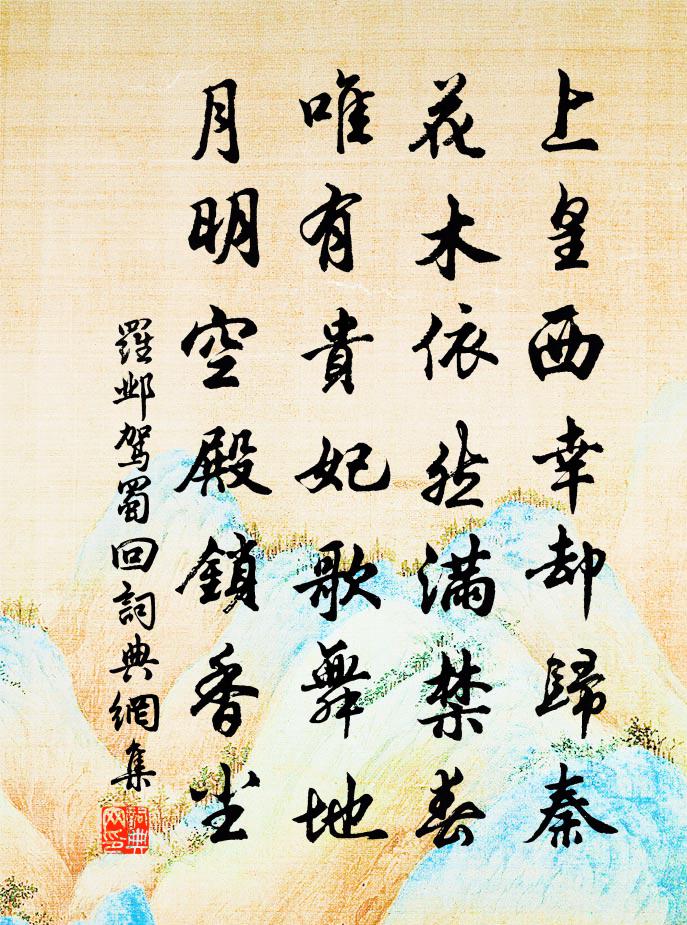 上皇西幸却歸秦
花木依然滿禁春
唯有貴妃歌舞地
月明空殿鎖香尘
羅邺駕蜀回詞典網集
詞典网印